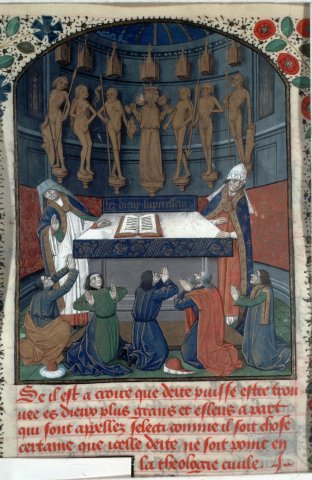 Se il est a croire que deite puisse estre trou
uee es dieux plus grans et esleus a part
qui sont appellez selecti comme il soit chose
certaine que icelle deite ne soit point en
la theologie ciuile